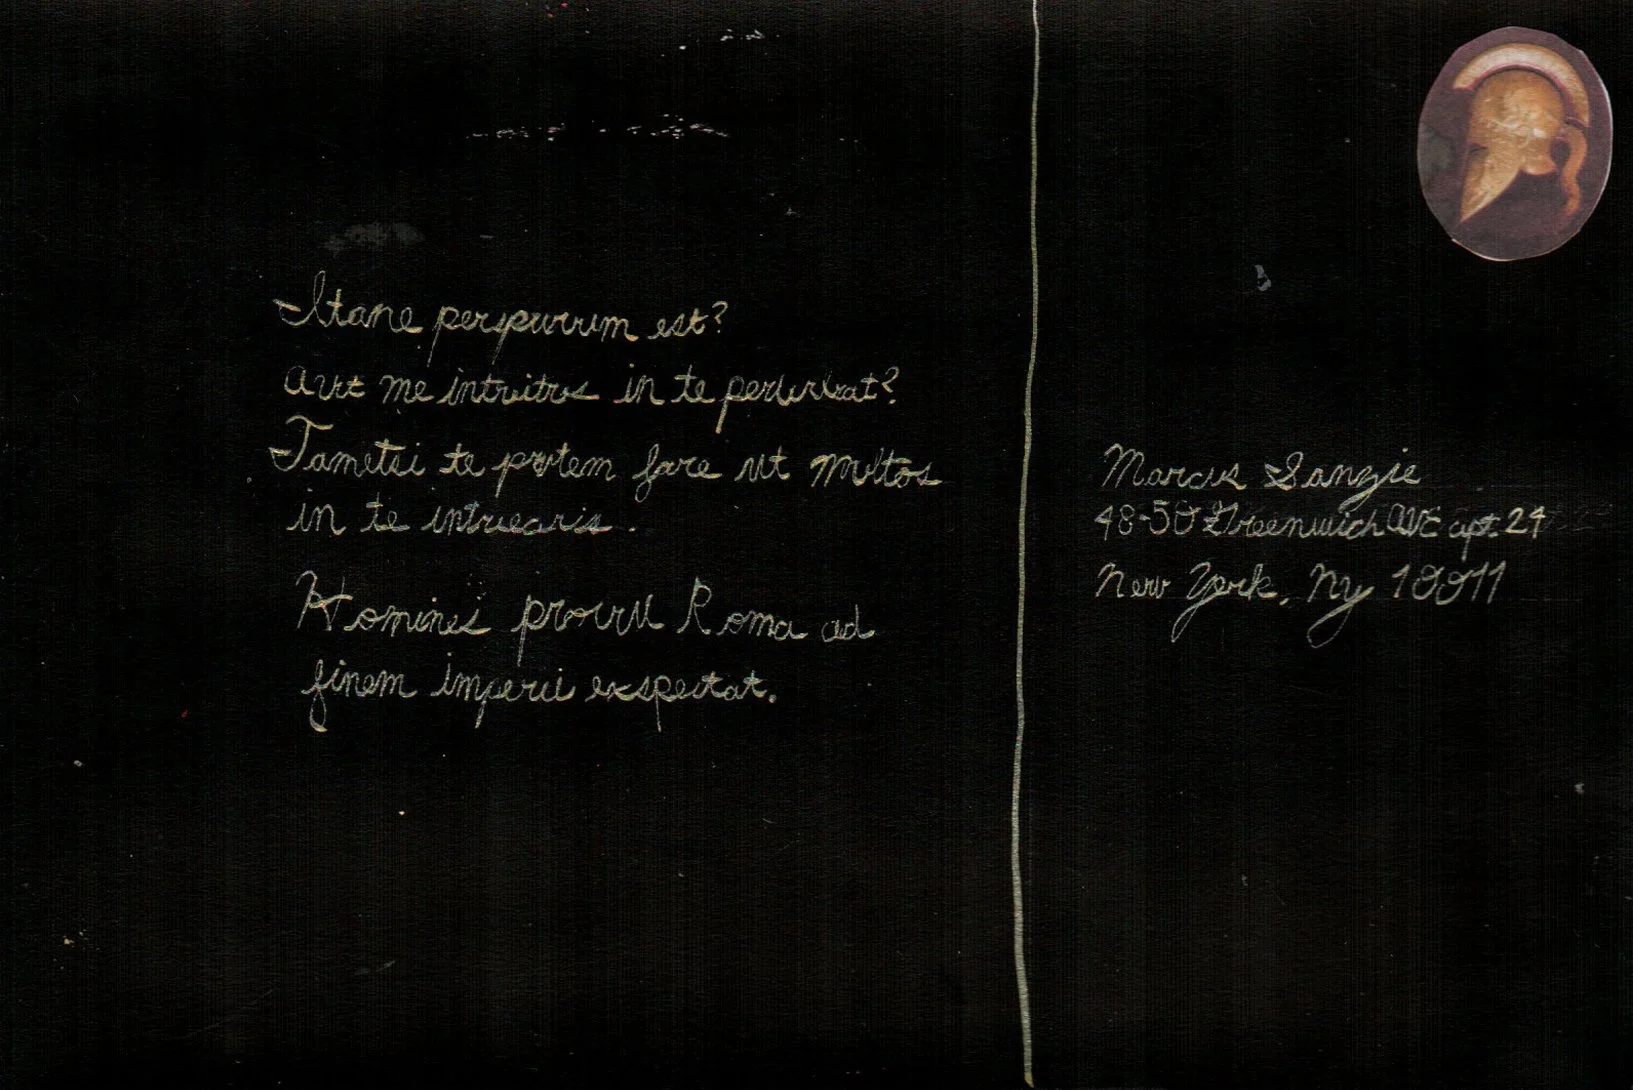 Itane perpurum est?
aut me intuitus in te perturbat?
Tametsi te putem fore ut multos
in te intuearis.
Homines procul Roma ad
finem imperii exspectat.
Marcus Sangie
48-50 Greenwich AVE apt. 24
New York, Ny 10011